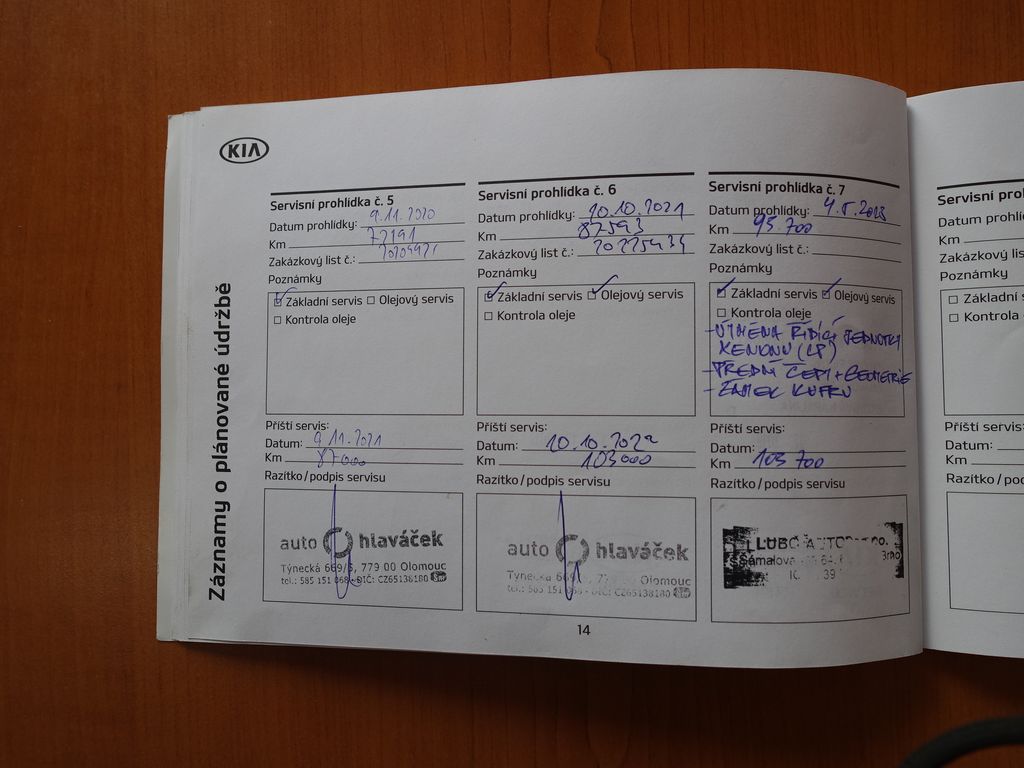 KIA
Záznamy o plánované údržbě
Servisní prohlídka č. 5
Datum prohlídky: 9.11.2020
Km 77191
Zakázkový list č.:
Poznámky
Základní servis Olejový servis
Kontrola oleje
Příští servis:
Datum: 9.11.2021
Km 87000
Razítko/podpis servisu
auto hlaváček
Týnecká 669/5, 779 00 Olomouc
tel.: 585 151 068 - DIČ: CZ65138180
Servisní prohlídka č. 6
Datum prohlídky: 10.10.2021
Km 87593
Zakázkový list č.:
Poznámky
Základní servis Olejový servis
Kontrola oleje
Příští servis:
Datum: 10.10.2022
Km 103000
Razítko/podpis servisu
auto hlaváček
Týnecká Olomouc
DIČ: CZ65138180
Servisní prohlídka č. 7
Datum prohlídky: 4.5.2023
Km 93.700
Zakázkový list č.:
Poznámky
Základní servis Olejový servis
Kontrola oleje
- VÝMĚNA ŘÍDÍCÍ JEDNOTKY
XENONU (LP)
- PŘEDNÍ ČEPY + GEOMETRIE
- ZÁMEK KUFRU
Příští servis:
Datum:
Km 103 700
Razítko/podpis servisu
Servisní prohl
Datum prohlí
Km
Zakázkový list č
Poznámky
Základní s
Kontrola
Příští servis:
Datum:
Km
Razítko/po
14